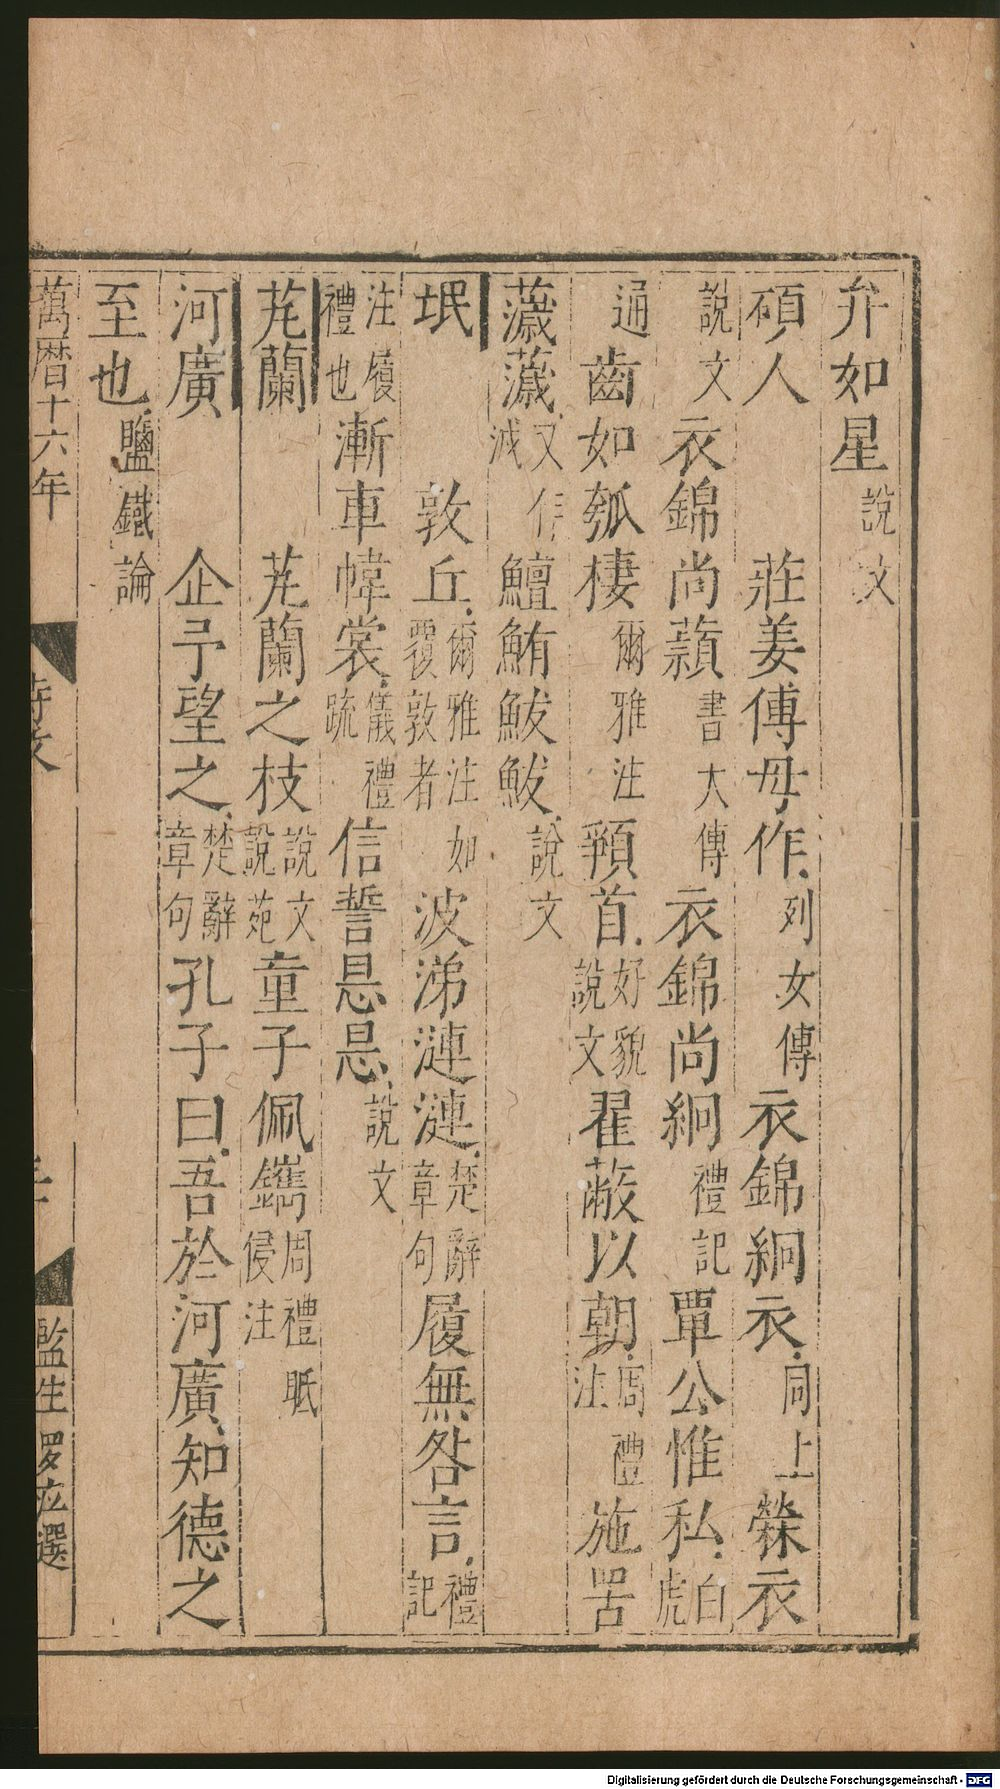 弁如星說文
碩人 莊姜傅母作列女傳衣錦絅衣同上檾衣
說文衣錦尚蘏書大傳衣錦尚絅禮記覃公惟私白虎
通齒如瓠棲爾雅注頯首好貌說文翟蔽以朝周禮注施罟
濊濊又作減鱣鮪鮁鮁說文
氓 敦丘爾雅注如覆敦者波涕漣漣楚辭章句履無咎言禮記
注履禮也漸車幃裳儀禮疏信誓悬悬說文
芄蘭 芄蘭之枝說文說苑童子佩鑴周禮眡祲注
河廣 企予望之楚辭章句孔子曰吾於河廣知德之
至也鹽鐵論
萬曆十六年
監生
Digitalisierung gefördert durch die Deutsche Forschungsgemeinschaft - DFG